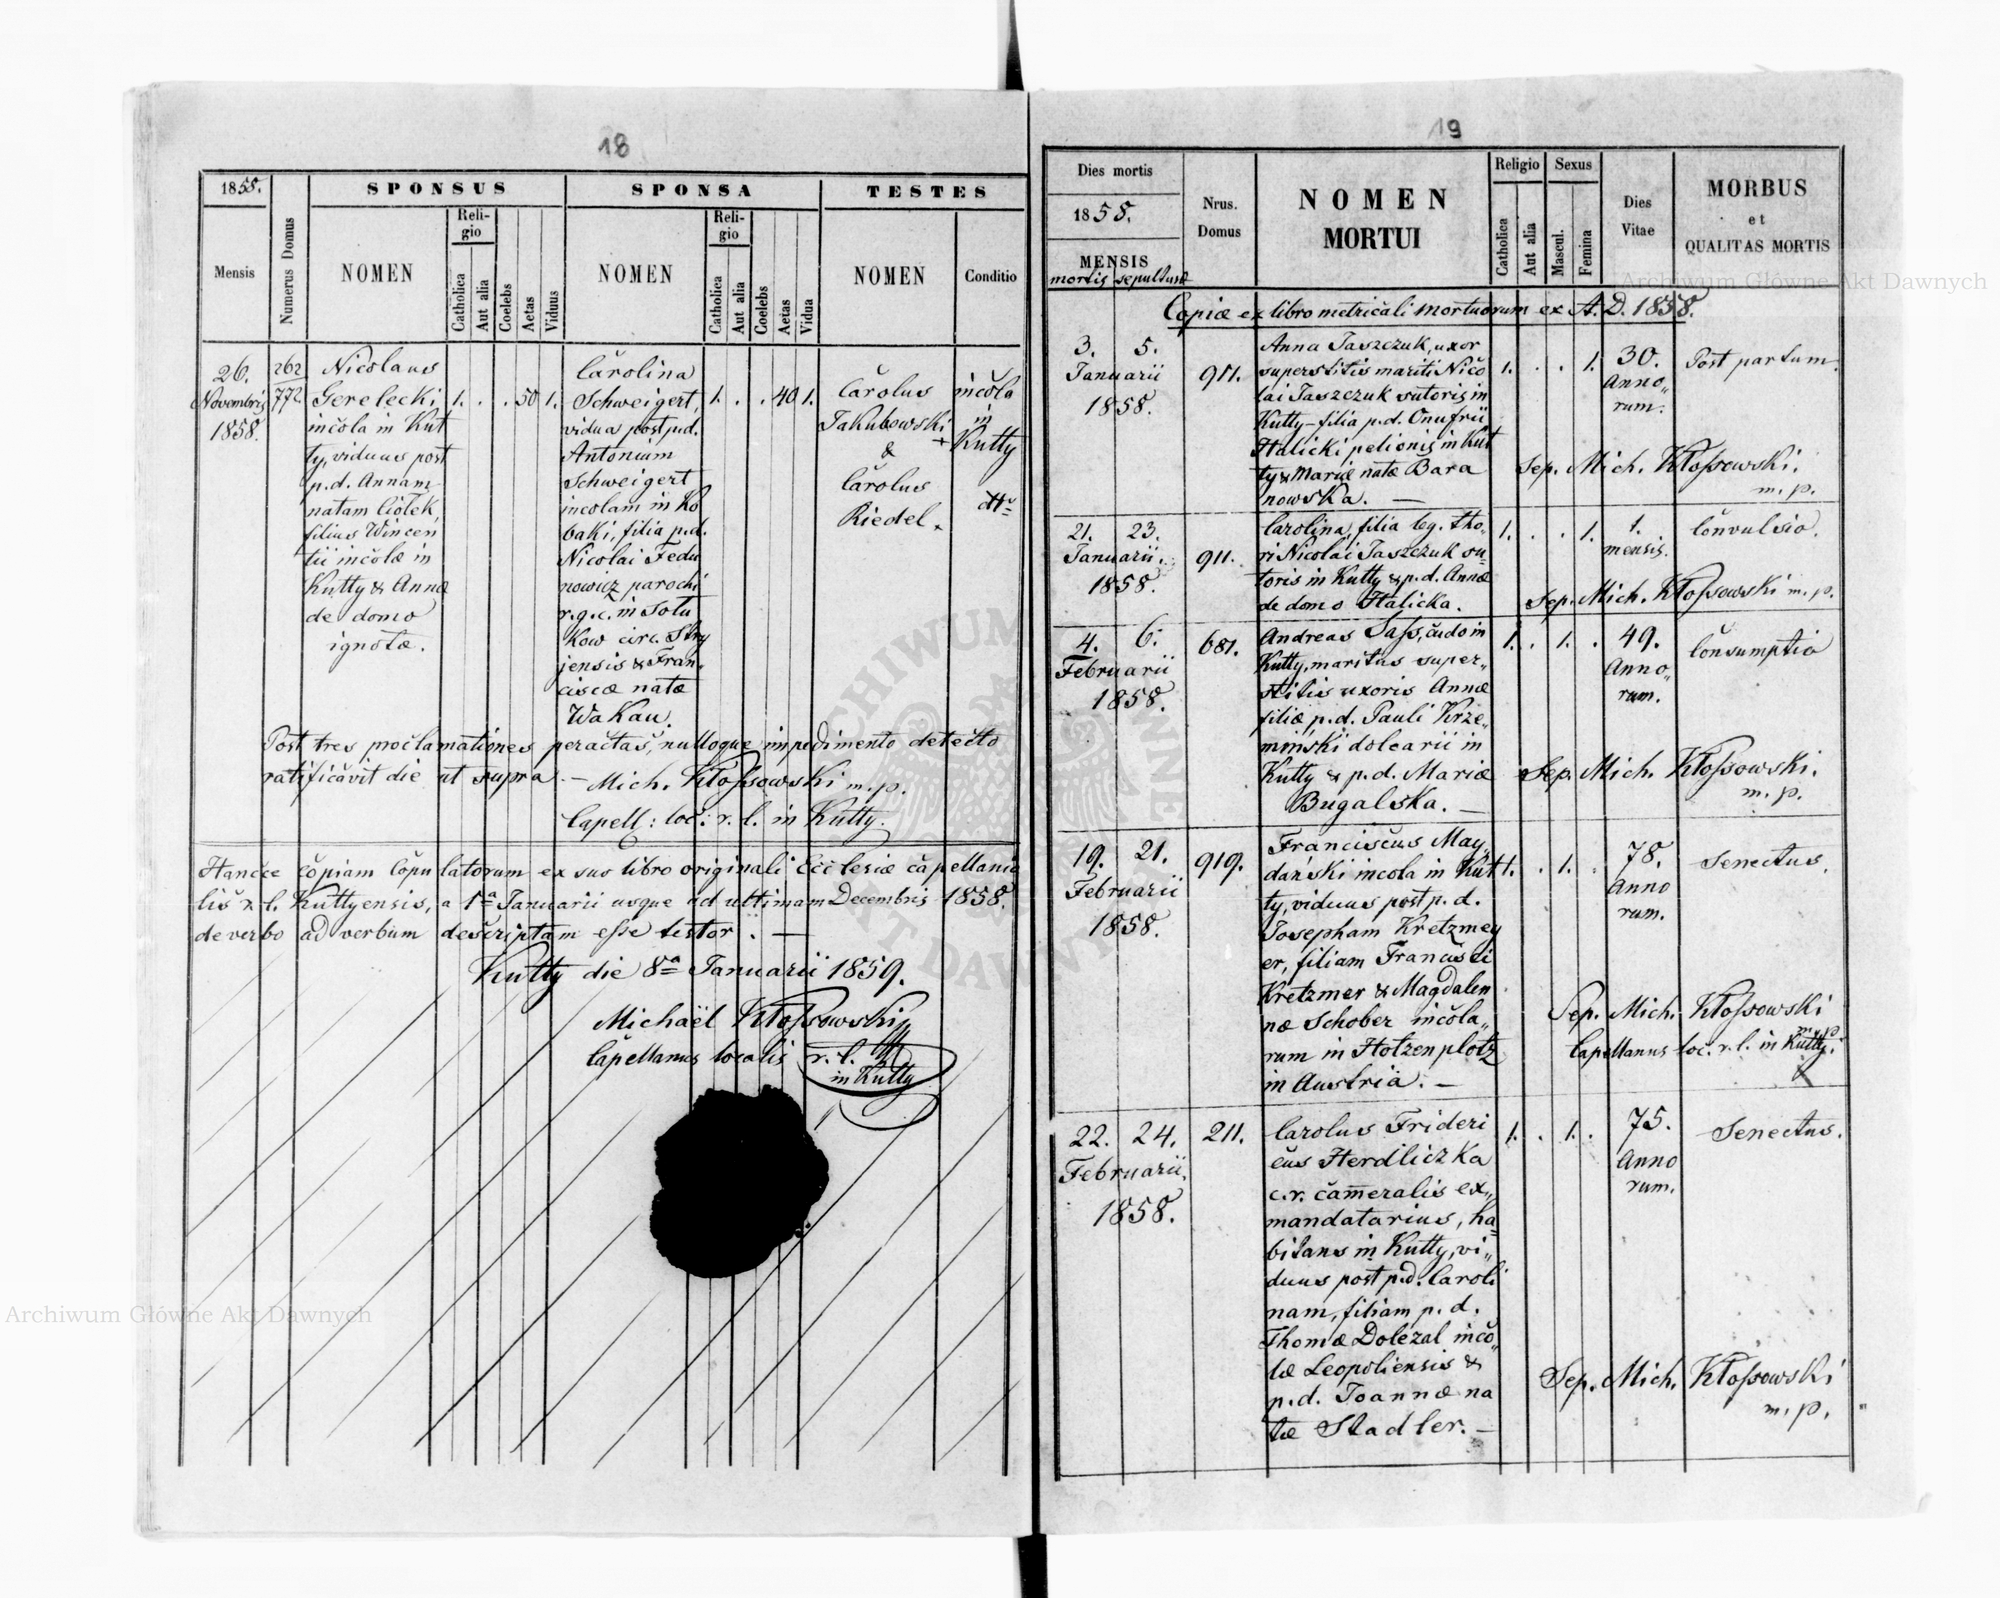 18
1858.
Mensis
Numerus Domus
SPONSUS
NOMEN
Reli-
gio
Catholica
Aut alia
Coelebs
Aetas
Viduus
SPONSA
NOMEN
Reli-
gio
Catholica
Aut alia
Coelebs
Aetas
Vidua
TESTES
NOMEN
Conditio
26.
Novembris
1858.
262
772
Nicolaus
Gerelecki
incola in Kut
ty, viduus post
p.d. Annam
natam Ciołek,
filius Wincen
tii incolæ in
Kutty & Annæ
de domo
ignotæ.
1. . . 50 1.
Carolina
Schweigert,
vidua post p.d.
Antonium
Schweigert
incolam in Ko
baki, filia p.d.
Nicolai Fedu
nowicz parochi
r.g.c. in Sotu
kow circ. Stry
jensis & Fran„
ciscæ natæ
Wakau.
1. . . 40 1.
Carolus
Jakubowski
+
&
Carolus
Riedel.
incola
in
Kutty
Post tres proclamationes peractas, nulloque impedimento detecto
ratificavit die ut supra. — Mich. Kłossowski m.p.
Capell: loc: r. l. in Kutty.
Hancce copiam Copulatorum ex suo libro originali Ecclesiæ capellania
lis r. l. Kuttyensis, a 1ª Januarii usque ad ultimam Decembris 1858.
de verbo ad verbum descriptam esse testor. —
Kutty die 8ª Januarii 1859.
Michaël Kłossowski
Capellanus localis r. l.
in Kutty
19
Dies mortis
1858.
MENSIS
mortis sepulturæ
Nrus.
Domus
NOMEN
MORTUI
Religio
Catholica
Aut alia
Sexus
Mascul.
Femina
Dies
Vitae
MORBUS
et
QUALITAS MORTIS
Copiæ ex libro metricali mortuorum ex A. D. 1858.
3. 5.
Januarii
1858.
911.
Anna Jaszczuk, uxor
superstitis mariti Nico
lai Jaszczuk sutoris in
Kutty – filia p.d. Onufrii
Halicki pelionis in Kut
ty & Mariæ natæ Bara
nowska. —
1. . . 1.
30.
Anno„
rum.
Post partum.
Sep. Mich. Kłossowski.
m. p.
21. 23.
Januarii.
1858.
911.
Carolina, filia leg. tho„
ri Nicolai Jaszczuk su
toris in Kutty & p.d. Annæ
de domo Halicka.
1. . . 1.
1.
mensis.
Convulsio.
Sep. Mich. Kłossowski m. p.
4. 6.
Februarii
1858.
681.
Andreas Sass, cudo in
Kutty, maritus super„
stitis uxoris Annæ
filiæ p.d. Pauli Krze„
miński dolearii in
Kutty & p.d. Mariæ
Bugalska. —
1. . 1. .
49.
Anno„
rum.
Consumptio
Sep. Mich. Kłossowski.
m. p.
19. 21.
Februarii
1858.
919.
Franciscus May„
dański incola in Kut
ty, viduus post p. d.
Josepham Kretzmey
er, filiam Francisci
Kretzmer & Magdalen
næ Schober incola„
rum in Hotzenplotz
in Austria. —
1. . 1. .
78.
Anno
rum.
Senectus.
Sep. Mich. Kłossowski
m. p.
Capellanus loc. r. l. in Kutty.
22. 24.
Februarii.
1858.
211.
Carolus Frideri
cus Herdliczka
c.r. cameralis ex„
mandatarius, ha„
bitans in Kutty, vi„
duus post p.d. Caroli
nam, filiam p. d.
Thomæ Dolezal inco„
læ Leopoliensis &
p.d. Joannæ na
tæ Stadler. —
1. . 1. .
75.
Anno
rum.
Senectus.
Sep. Mich. Kłossowski
m. p.
Archiwum Główne Akt Dawnych
Archiwum Główne Akt Dawnych